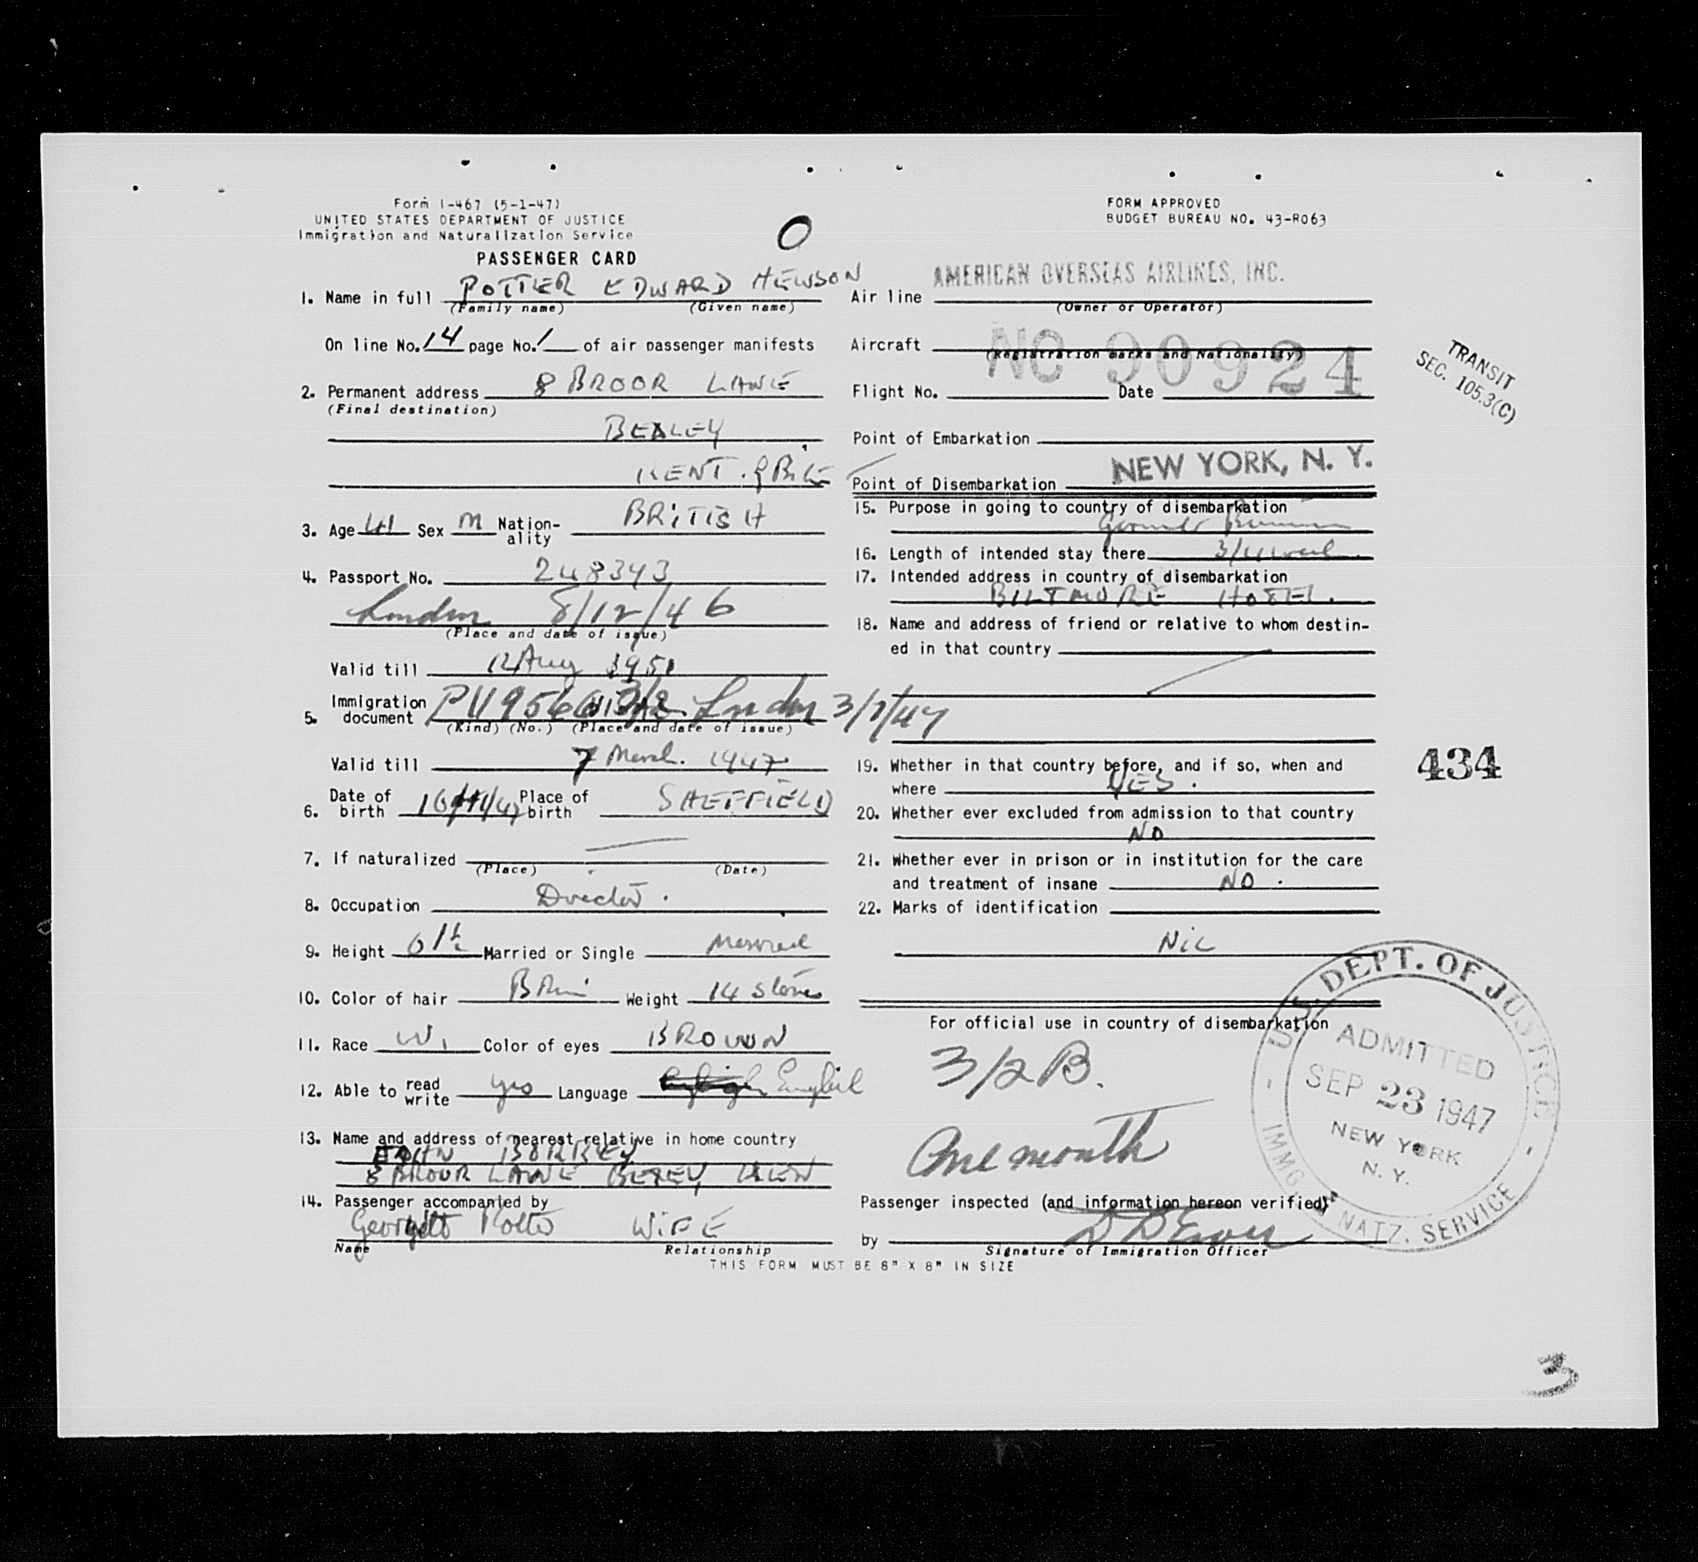 Form I-467 (5-1-47)
UNITED STATES DEPARTMENT OF JUSTICE
Immigration and Naturalization Service
PASSENGER CARD
FORM APPROVED
BUDGET BUREAU NO. 43-R063
O
1. Name in full POTTER EDWARD HEWSON
(Family name) (Given name)
On line No. 14 page No. 1 of air passenger manifests
2. Permanent address 8 BROOK LANE
(Final destination)
BEXLEY
KENT.
3. Age 41 Sex M Nation-ality BRITISH
4. Passport No. 248343
London 8/12/46
(Place and date of issue)
Valid till 12 Aug 1951
5. Immigration document London
(Kind) (No.) (Place and date of issue)
Valid till 7 March. 1947
6. Date of birth Place of birth SHEFFIELD
7. If naturalized
(Place) (Date)
8. Occupation Director.
9. Height Married or Single Married
10. Color of hair Weight 14 stones
11. Race W. Color of eyes BROWN
12. Able to read write yes Language English
13. Name and address of nearest relative in home country
8 BROOK LANE BEXLEY
14. Passenger accompanied by
WIFE
Name Relationship
Air line AMERICAN OVERSEAS AIRLINES, INC.
(Owner or Operator)
Aircraft NC 90924
(Registration marks and Nationality)
Flight No. Date
Point of Embarkation
Point of Disembarkation NEW YORK, N. Y.
15. Purpose in going to country of disembarkation
16. Length of intended stay there
17. Intended address in country of disembarkation
BILTMORE HOTEL.
18. Name and address of friend or relative to whom destin-
ed in that country
19. Whether in that country before, and if so, when and
where YES.
20. Whether ever excluded from admission to that country
NO
21. Whether ever in prison or in institution for the care
and treatment of insane NO.
22. Marks of identification
Nil
For official use in country of disembarkation
3/2 B.
One month
Passenger inspected (and information hereon verified)
by
Signature of Immigration Officer
THIS FORM MUST BE 8" X 8" IN SIZE
TRANSIT
SEC. 105.3(C)
434
U.S. DEPT. OF JUSTICE
ADMITTED
SEP 23 1947
NEW YORK
N. Y.
IMMG. NATZ. SERVICE
3